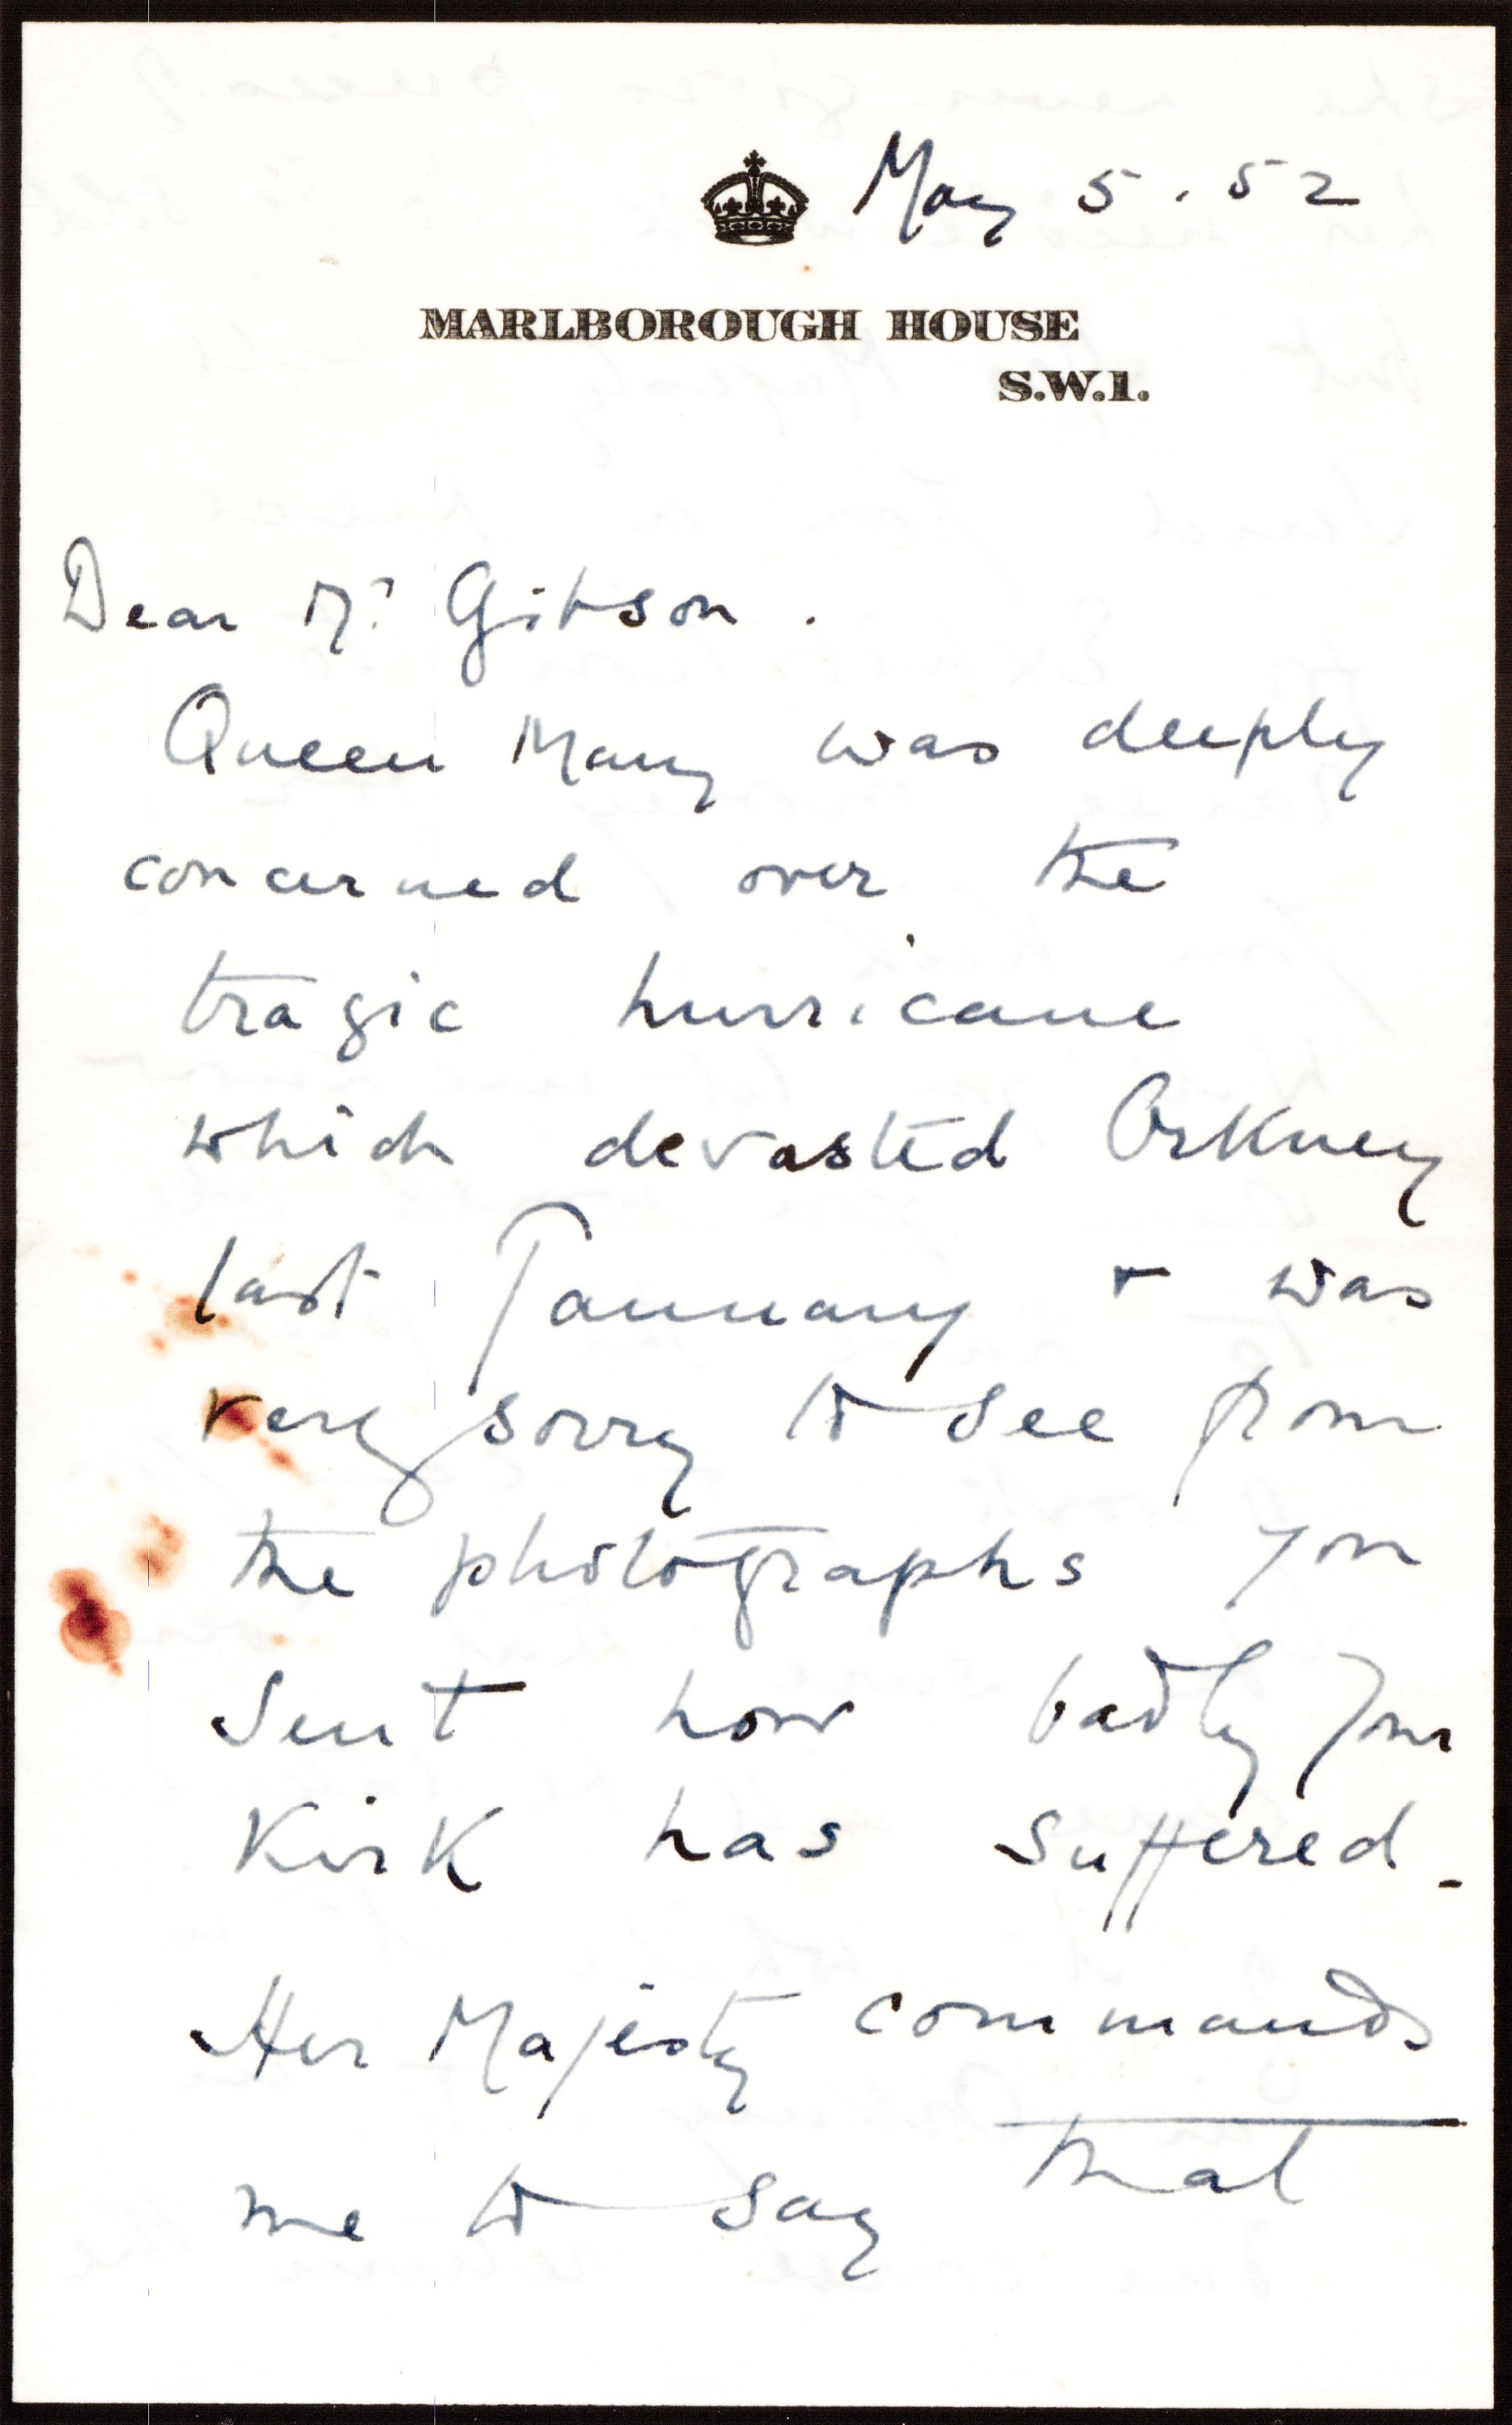 May 5. 52
MARLBOROUGH HOUSE
S.W.1.
Dear Mr Gibson.
Queen Mary was deeply
concerned over the
tragic hurricane
which devasted Orkney
last January & was
very sorry to see from
the photographs you
sent how badly your
Kirk has suffered.
Her Majesty commands
me to say that